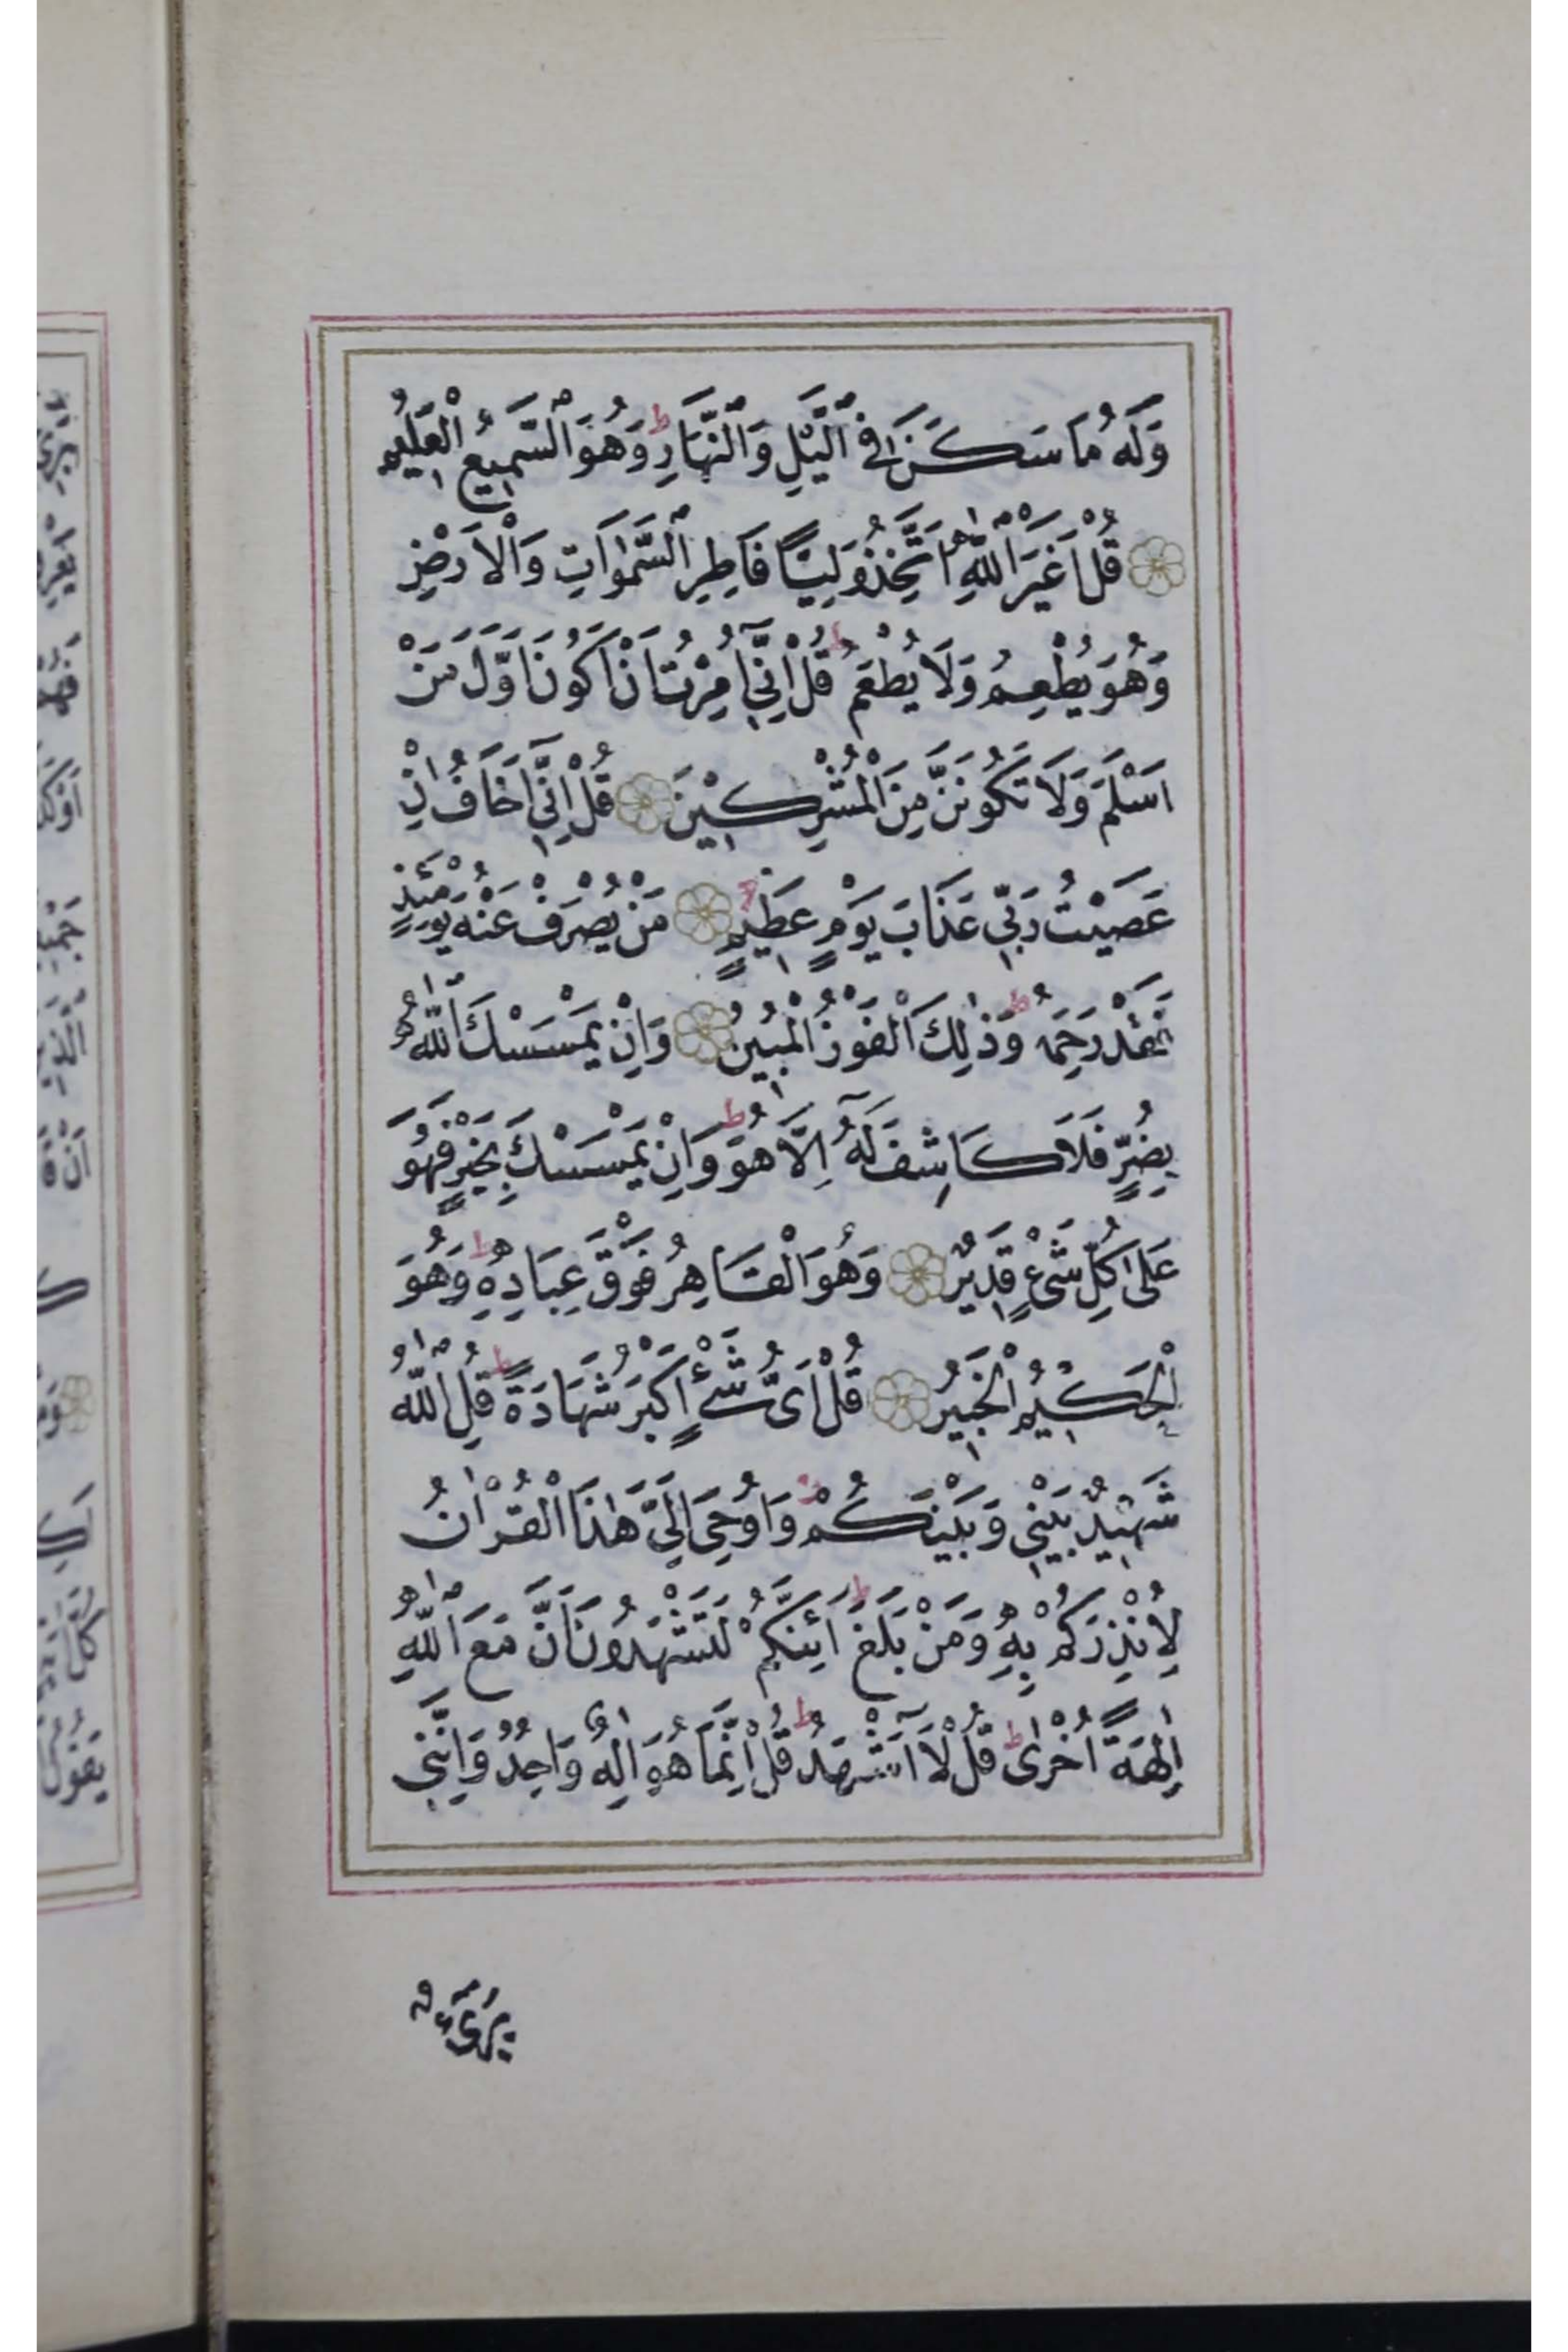 وَلَهُ مَا سَكَنَ فِى الَّيْلِ وَالنَّهَارِ ط وَهُوَ السَّمِيعُ الْعَلِيمُ
قُلْ اَغَيْرَ اللّٰهِ اَتَّخِذُ وَلِيًّا فَاطِرِ السَّمٰوَاتِ وَالْاَرْضِ
وَهُوَ يُطْعِمُ وَلَا يُطْعَمُ ط قُلْ اِنِّٓى اُمِرْتُ اَنْ اَكُونَ اَوَّلَ مَنْ
اَسْلَمَ وَلَا تَكُونَنَّ مِنَ الْمُشْرِكِينَ قُلْ اِنِّٓى اَخَافُ اِنْ
عَصَيْتُ رَبِّى عَذَابَ يَوْمٍ عَظِيمٍ مَنْ يُصْرَفْ عَنْهُ يَوْمَئِذٍ
فَقَدْ رَحِمَهُ ط وَذٰلِكَ الْفَوْزُ الْمُبِينُ وَاِنْ يَمْسَسْكَ اللّٰهُ
بِضُرٍّ فَلَا كَاشِفَ لَهُٓ اِلَّا هُوَ ط وَاِنْ يَمْسَسْكَ بِخَيْرٍ فَهُوَ
عَلٰى كُلِّ شَىْءٍ قَدِيرٌ وَهُوَ الْقَاهِرُ فَوْقَ عِبَادِهِ ط وَهُوَ
الْحَكِيمُ الْخَبِيرُ قُلْ اَىُّ شَىْءٍ اَكْبَرُ شَهَادَةً ط قُلِ اللّٰهُ
شَهِيدٌ بَيْنِى وَبَيْنَكُمْ وَاُوحِىَ اِلَىَّ هٰذَا الْقُرْاٰنُ
لِاُنْذِرَكُمْ بِهِ وَمَنْ بَلَغَ ط اَئِنَّكُمْ لَتَشْهَدُونَ اَنَّ مَعَ اللّٰهِ
اٰلِهَةً اُخْرٰى ط قُلْ لَٓا اَشْهَدُ ط قُلْ اِنَّمَا هُوَ اِلٰهٌ وَاحِدٌ وَاِنَّنِى
بَرِىءٌ